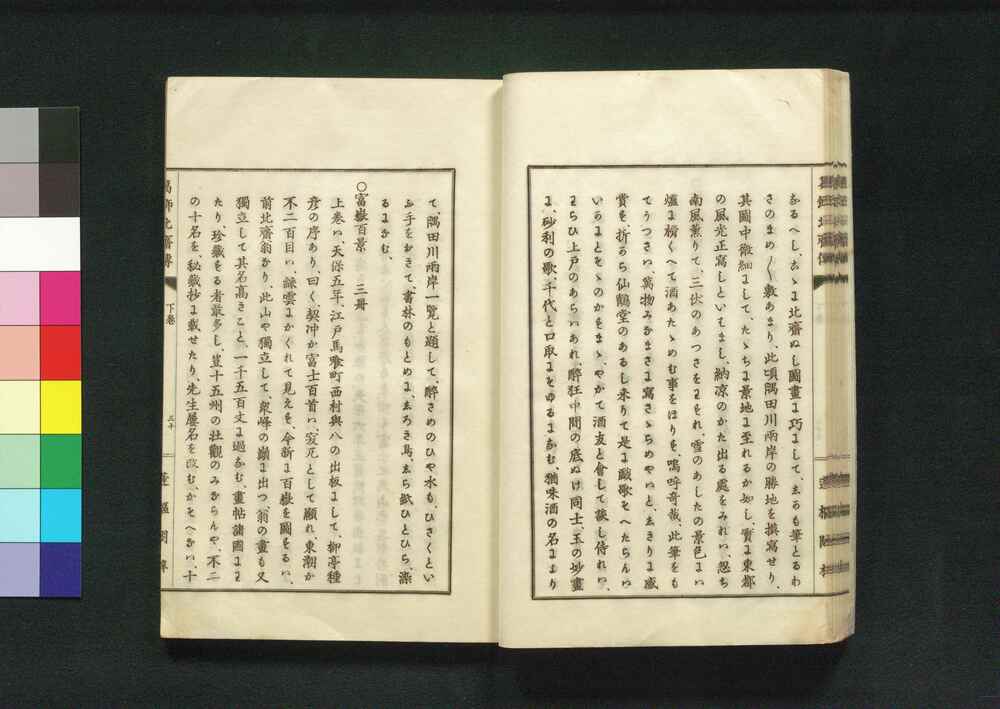 なるへし、こゝに北齋ぬし圖畫に巧にして、しかも筆とるわ
さのまめ〳〵敷あまり、此頃隅田川兩岸の勝地を撰寫せり、
其圖中微細にして、たゝちに景地に至れるか如し、實に東都
の風光正寫しといてまし、納凉のかた出る處をみれハ、忽ち
南風薫りて、三伏のあつさをわすれ、雪のあしたの景色にハ
爐に榜くへて酒あたゝめむ事をほりす、嗚呼奇哉、此筆をも
てうつさハ、萬物みなまさに寫さゝらめやハと、しきりに感
賞を折から仙鶴堂のあるし來りて是に戯歌をそへたらんハ
いかにとそゝのかすまゝ、やかて酒友と會して談し侍れハ、
まらひ上戸のあらハあれ、醉狂中間の底ぬけ同士、玉の妙畫
に、砂利の歌、千代と口取にそゆるになむ、猶味酒の名により
て、隅田川兩岸一覽と題して、醉さめのひや水も、ひさくとい
ふ手をおきて、書林のもとめに、しろき鳥、しら紙ひとひら、染
るになむ、
○富嶽百景 三册
上卷ハ、天保五年、江戸馬喰町西村與八の出板にして、柳亭種
彦の序あり、曰く、契冲か富士百首ハ、寂兀として顯れ東潮か
不二百目ハ、謎雲にかくれて見えす、今新に百嶽を圖するハ、
前北齋翁なり、此山や獨立して、衆峰の巓に出つ、翁の畫も又
獨立して其名高きこと、一千五百丈に過なむ、畫帖諸國にま
たり、珍藏する者最多し、豈十五州の壯觀のみならんや、不二
の十名を、秘藏抄に載せたり、先生屢名を改む、かそへなハ、十
下卷
三十